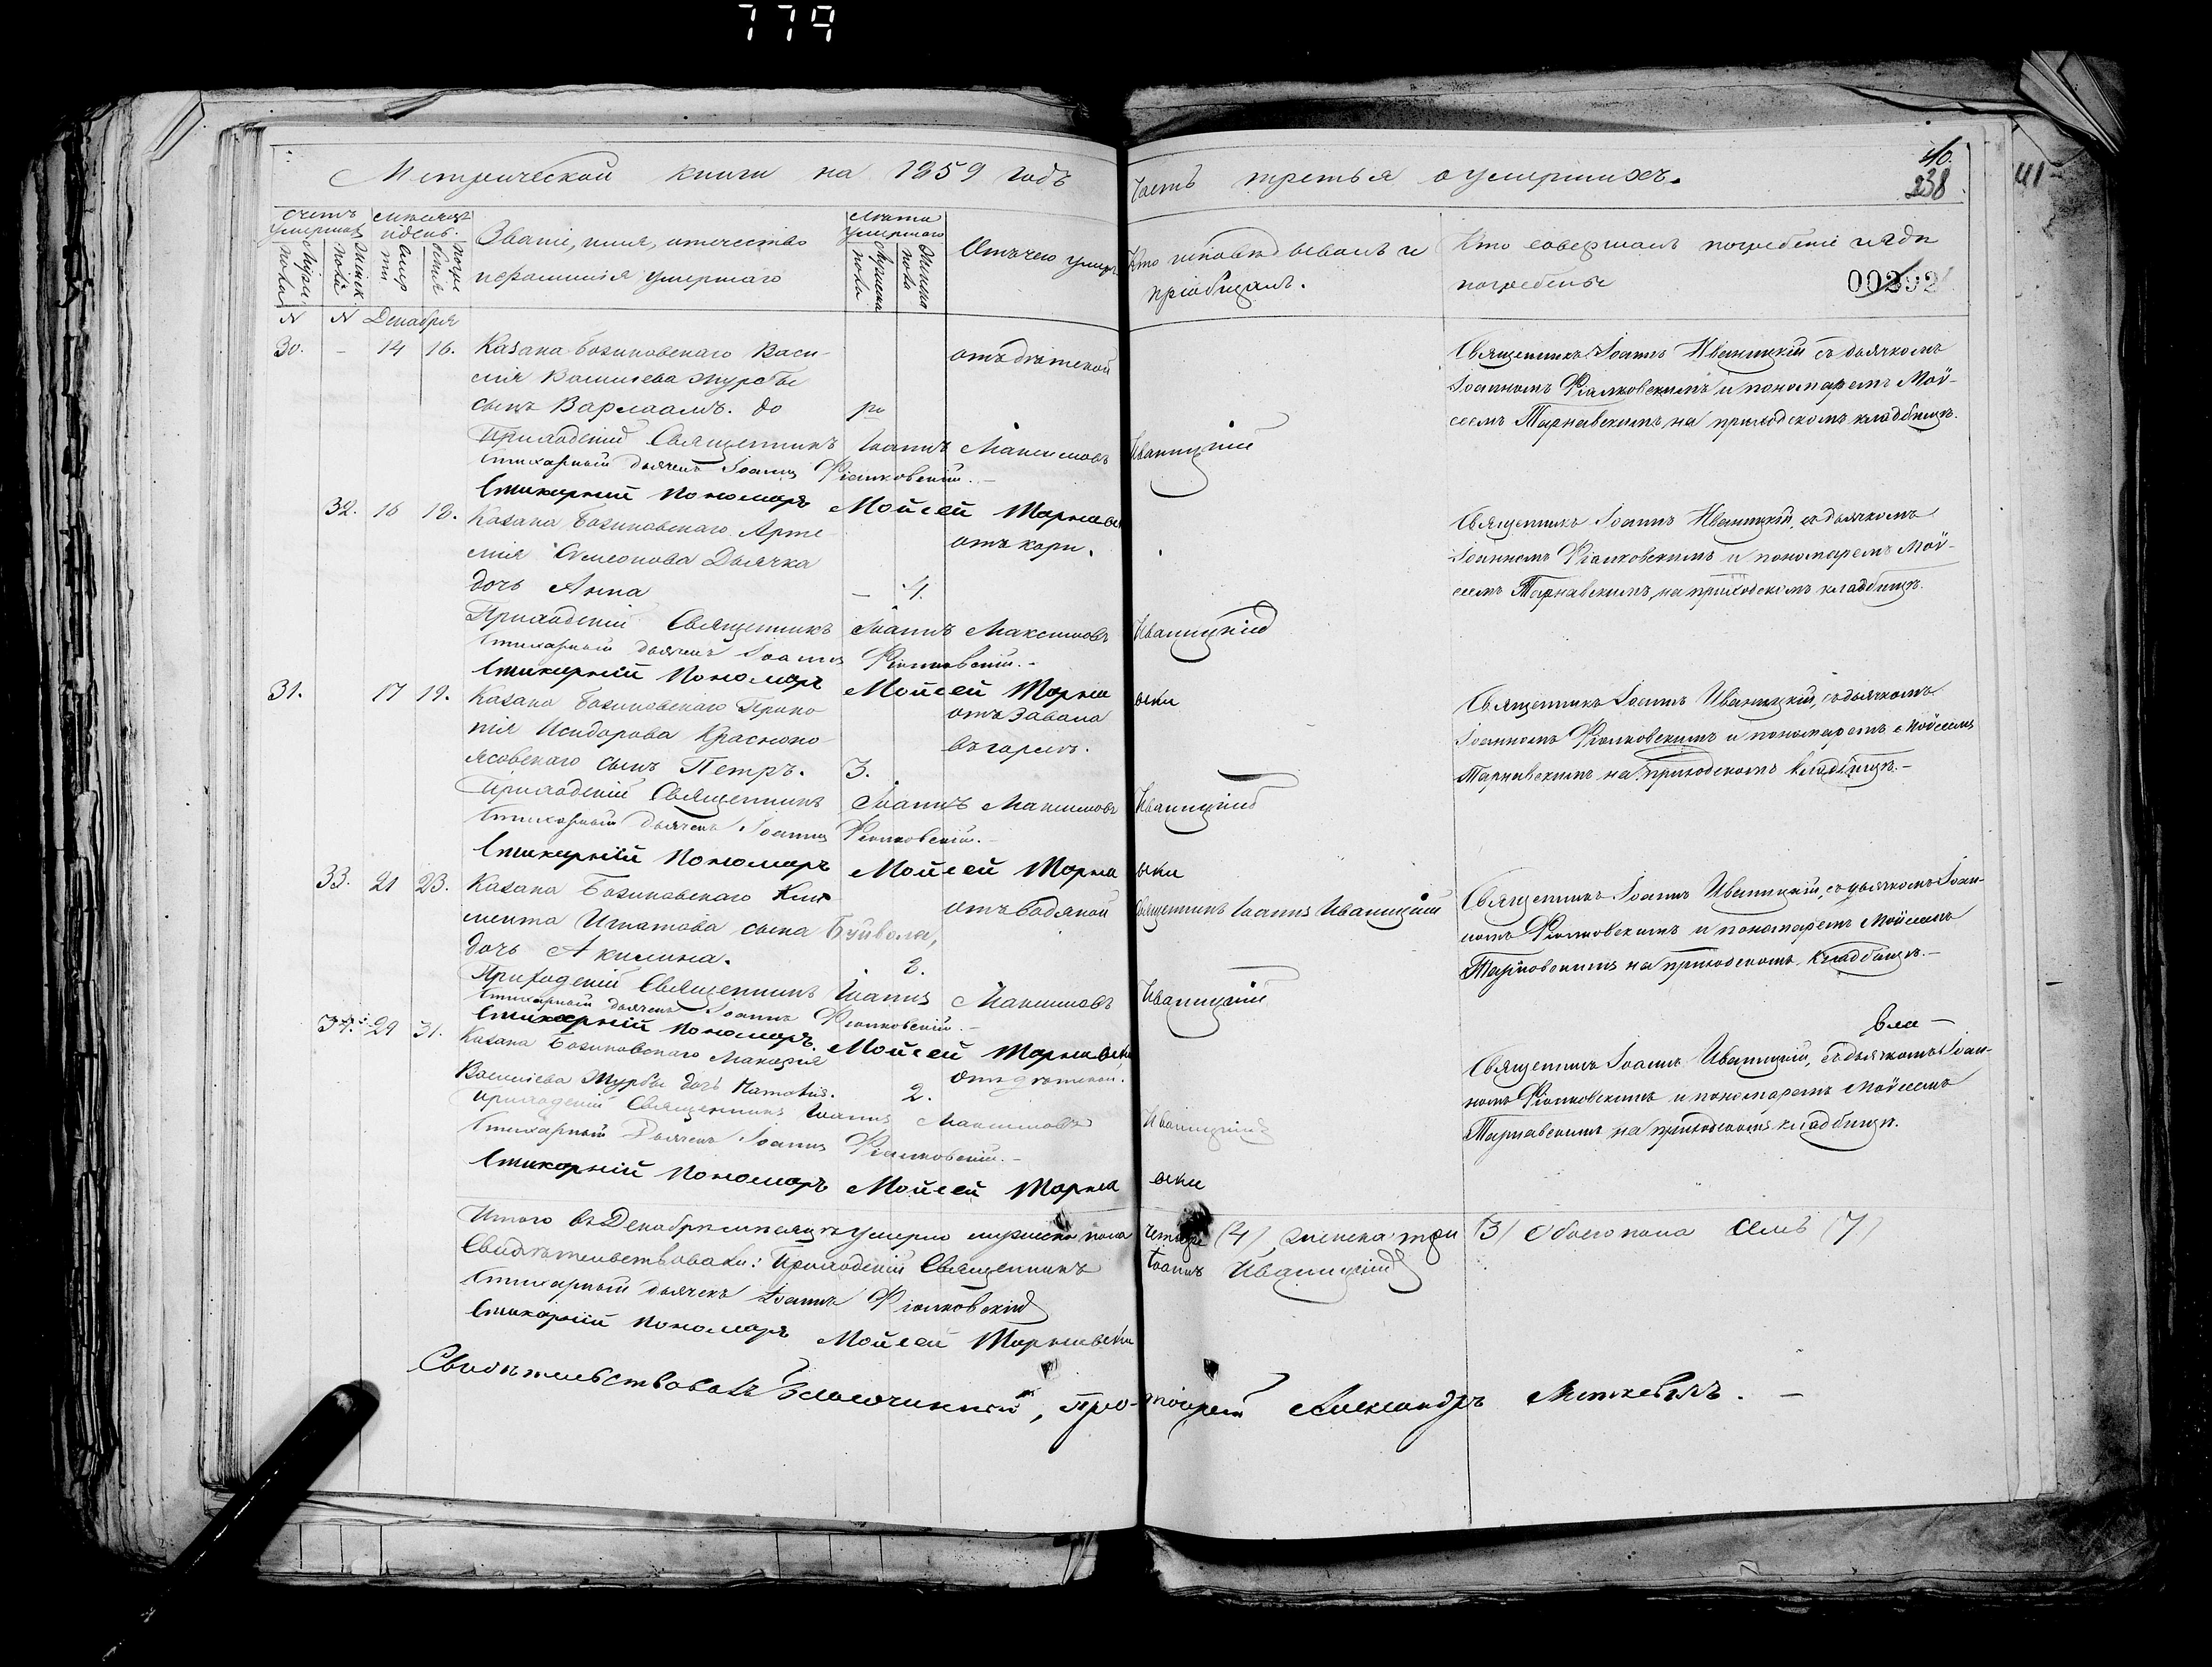 779
Метрической книги на 1859 годъ Часть третья о умершихъ.
40.
238
41
счетъ умершихъ
мужес. пола
женск. пола
месяцъ и день
смерти
погребенія
Званіе, имя, отчество и фамилія умершаго
лѣта умершаго
мужеска пола
женска пола
Отъ чего умеръ
Кто исповѣдывалъ и пріобщалъ.
Кто совершалъ погребеніе и гдѣ погребены
00292
N N Декабря
30. - 14 16. Казака Василія Васильева Журбы сынъ Варлаамъ. до
отъ дѣтской
Священникъ Іоаннъ Иваницкій съ дьячкомъ
Іоанномъ Фіалковскимъ и пономаремъ Мой-
сеемъ Тарнавскимъ на приходскомъ кладбищѣ.
Приходскій Священникъ Іоаннъ Максимовъ Иваницкій
Стихарный дьячекъ Іоаннъ Фіалковскій.-
Стихарній Пономарь Мойсей Тарнавски
32. 16 18. Казака Арте-
мія Симеонова Дьячка
дочь Анна - 4.
отъ кори.
Священникъ Іоаннъ Иваницкій, съ дьячкомъ
Іоанномъ Фіалковскимъ и пономаремъ Мой-
сеемъ Тарнавскимъ, на приходскомъ кладбищѣ.
Приходскій Священникъ Іоаннъ Максимовъ Иваницкій
Стихарный дьячекъ Іоаннъ Фіалковскій.-
Стихарній Пономарь Мойсей Тарнавски
31. 17 19. Казака Проко-
пія Исидорова Краснопо-
ясовскаго сынъ Петръ. 3.
отъ завала
въ горлѣ.
Священникъ Іоаннъ Иваницкій, съ дьячкомъ
Іоанномъ Фіалковскимъ и пономаремъ Мойсеемъ
Тарнавскимъ на приходскомъ кладбищѣ.-
Приходскій Священникъ Іоаннъ Максимовъ Иваницкій
Стихарный дьячекъ Іоаннъ Фіалковскій.-
Стихарній Пономарь Мойсей Тарнавски
33. 21 23. Казака Кли-
мента Игнатова сына Буйвола,
дочь Акилина. 2.
отъ водяной
Священникъ Іоаннъ Иваницкій
Священникъ Іоаннъ Иваницкій, съ дьячкомъ Іоан-
номъ Фіалковскимъ и пономаремъ Мойсеемъ
Тарновскимъ на приходскомъ кладбищѣ.-
Приходскій Священникъ Іоаннъ Максимовъ Иваницкій
Стихарный дьячекъ Іоаннъ Фіалковскій.-
Стихарній Пономарь Мойсей Тарнавски
34. 29 31. Казака Макарія
Васильева Журбы дочь 2.
отъ дѣтской.
Священникъ Іоаннъ Иваницкій, съ дьячкомъ Іоан-
номъ Фіалковскимъ и пономаремъ Мойсеемъ
Тарнавскимъ на приходскомъ кладбищѣ.
Приходскій Священникъ Іоаннъ Максимовъ Иваницкій
Стихарный Дьячекъ Іоаннъ Фіалковскій.-
Стихарній Пономарь Мойсей Тарнавски
Итого въ Декабрѣ мѣсяцѣ умерло мужеска пола четыре (4), женска три (3) обоего пола семь (7)
Свидѣтельствовали: Приходскій Священникъ Іоаннъ Иваницкій
Стихарный дьячекъ Іоаннъ Фіалковскій
Стихарній Пономарь Мойсей Тарнавски
Свидѣтельствовалъ Благочинный, Протоіерей Александръ